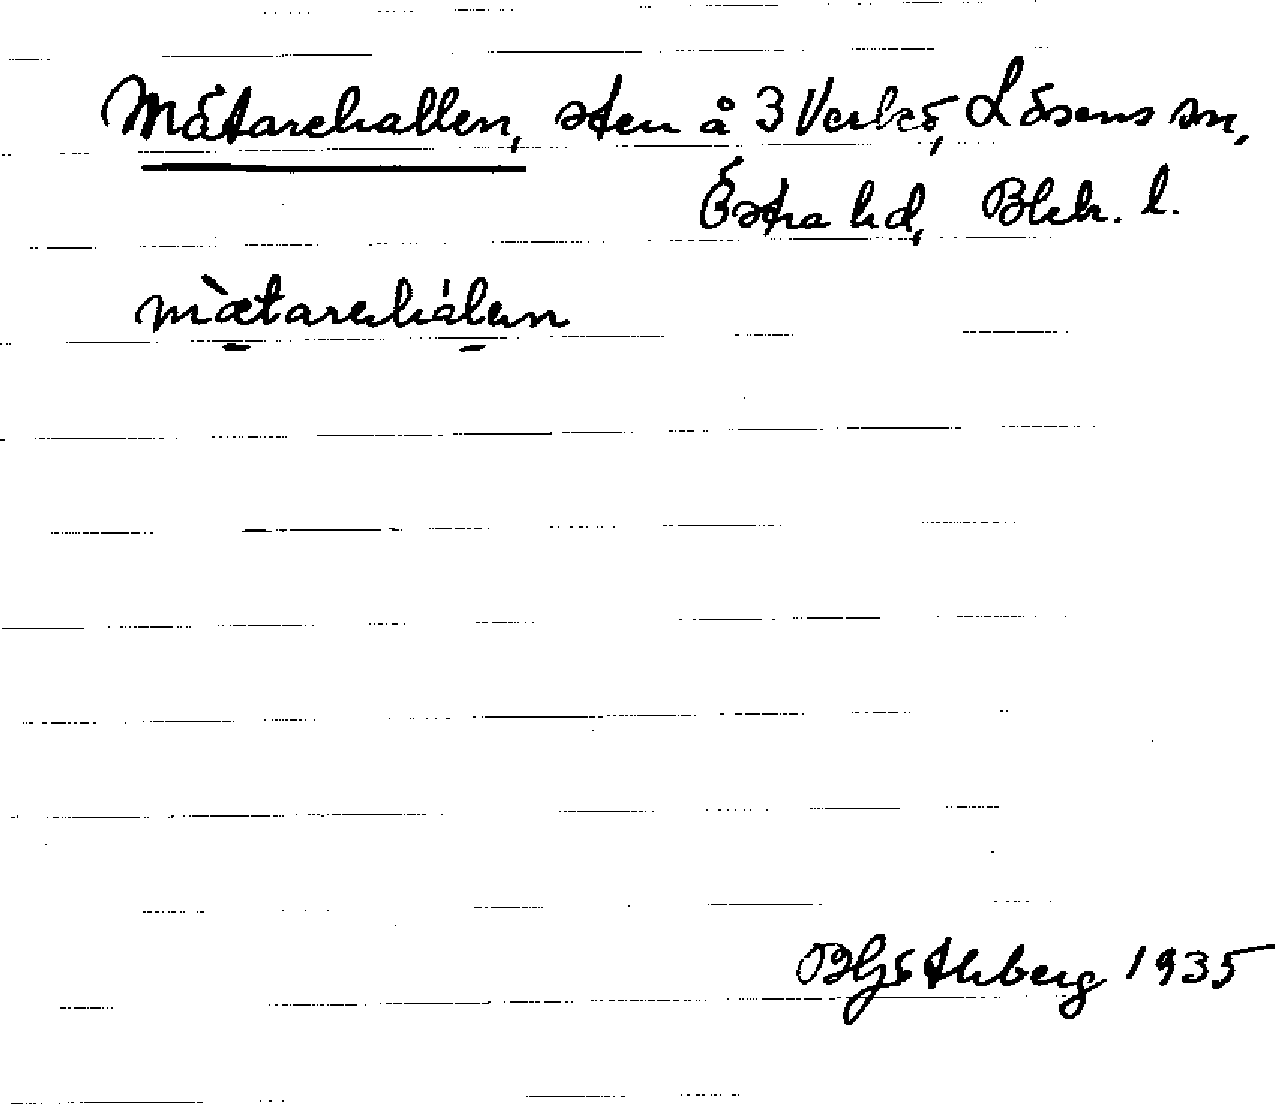 Mätarehallen, sten å 3 Verkö, Lösens sn,
Östra hd, Blek. l.
mætarehálen
B Göthberg 1935